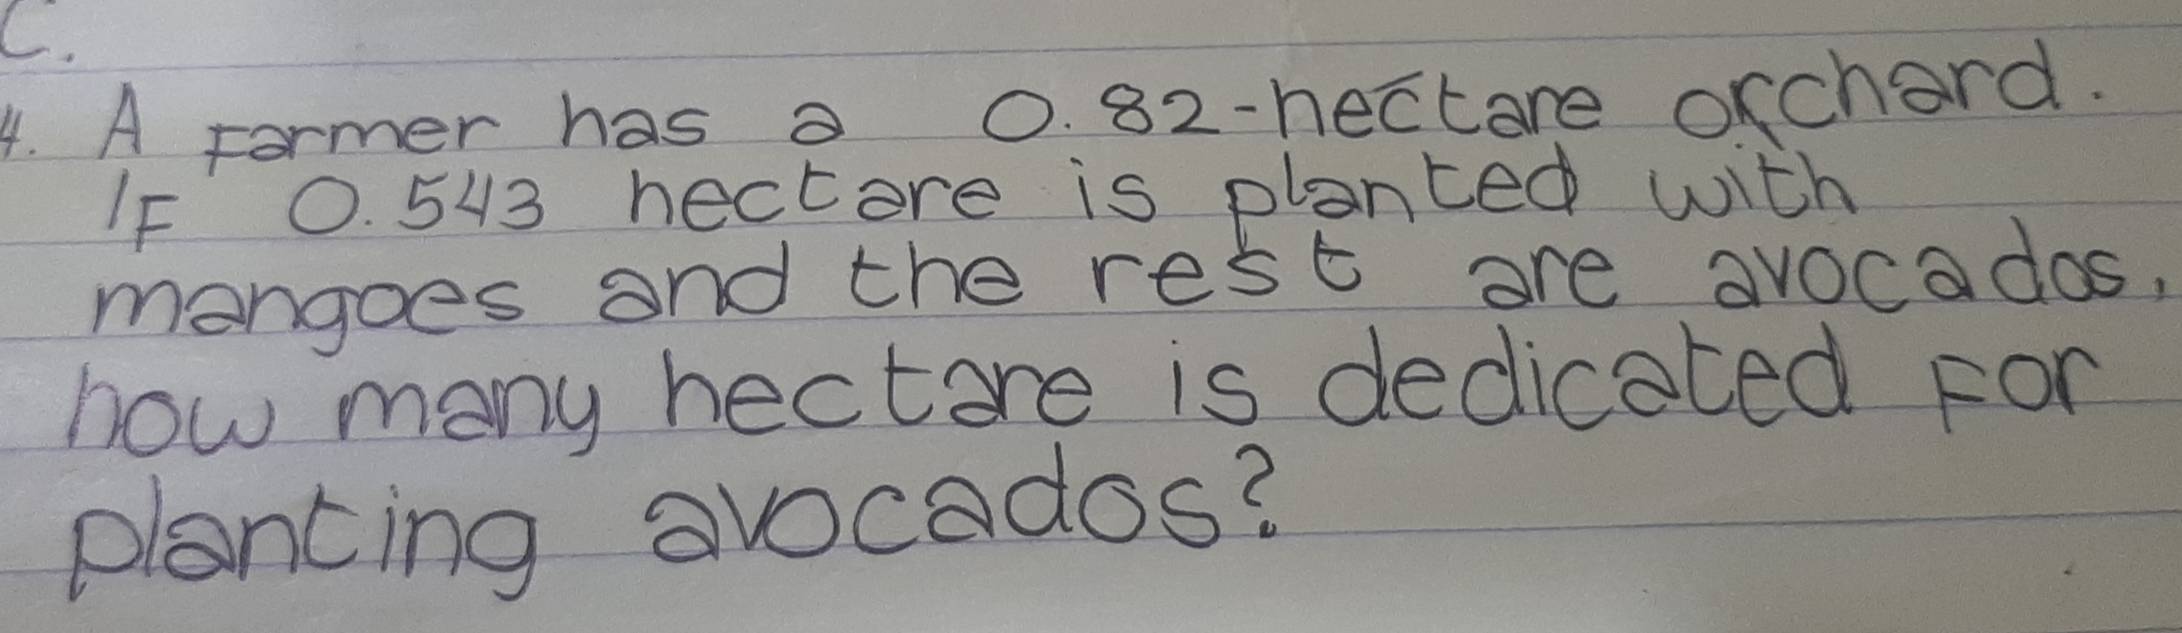 C.
4. A Farmer has a 0.82-hectare orchard.
IF 0.543 hectare is planted with
mangoes and the rest are avocados,
how many hectare is dedicated For
planting avocados?